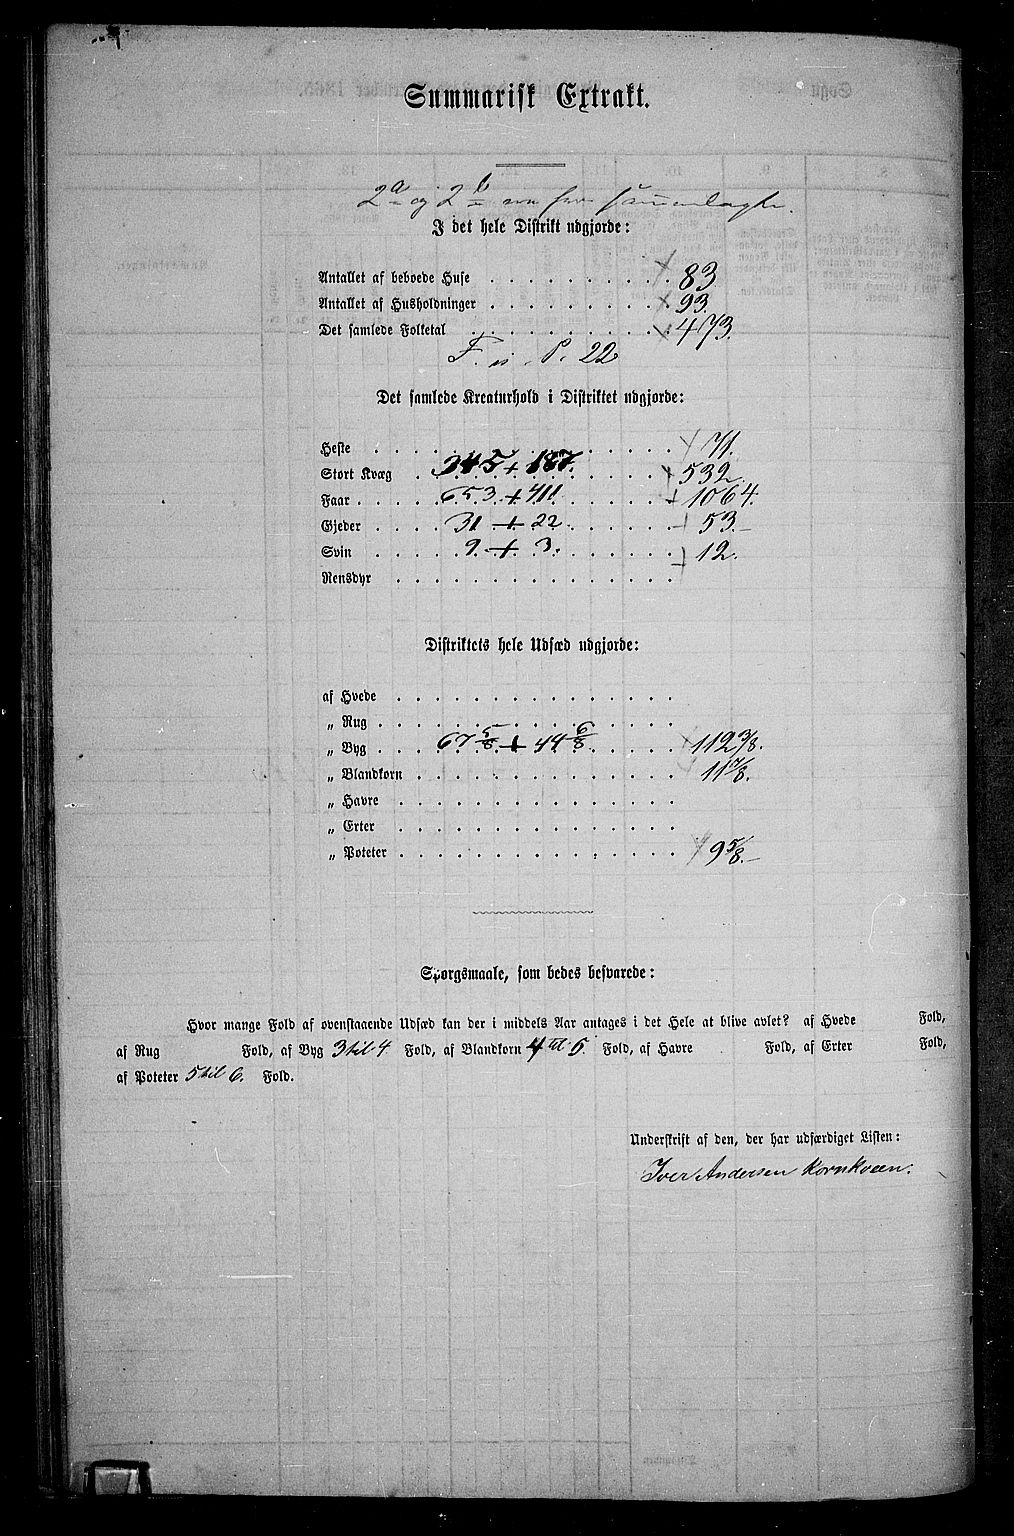 Summarisk Extrakt.
2a og 2b
I det hele Distrikt udgjorde:
Antallet af beboede Huse 83.
Antallet af Husholdninger 93.
Det samlede Folketal 473.
F. is. P. 22
Det samlede Kreaturhold i Distriktet udgjorde:
Heste 71.
Stort Kvæg 345 + 187. 532.
Faar 653 + 411 1064.
Gjeder 31 + 22. 53.
Svin 9 + 3. 12.
Rensdyr
Distriktets hele Udsæd udgjorde:
af Hvede
„ Rug
„ Byg 67 5/8 + 44 6/8 112 3/8.
„ Blandkorn 11 7/8.
„ Havre
„ Erter
„ Poteter 9 5/8.
Spørgsmaale, som bedes besvarede:
Hvor mange Fold af ovenstaaende Udsæd kan der i middels Aar antages i det Hele at blive avlet? af Hvede Fold,
af Rug Fold, af Byg 3 til 4 Fold, af Blandkorn 4 til 5. Fold, af Havre Fold, af Erter Fold,
af Poteter 5 til 6. Fold.
Underskrift af den, der har udfærdiget Listen:
Iver Andersen Kornkveen.